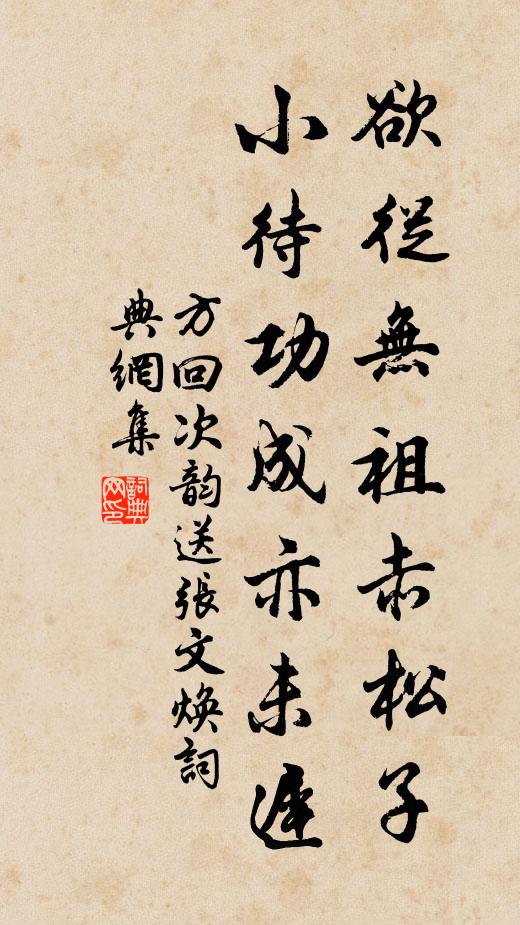 欲從無祖赤松子
小待功成亦未遲
方回次韵送張文焕詞
典網集
詞典网印